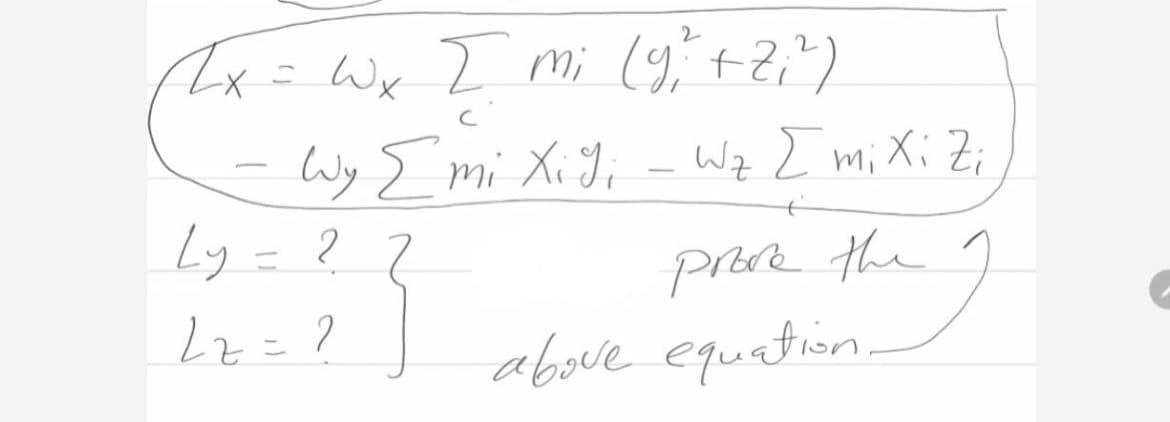 Lx = ωx Σ mi (yi² + zi²)
i
- ωy Σ mi xi yi - ωz Σ mi xi zi
i
Ly = ? }
prove the
Lz = ?
above equation